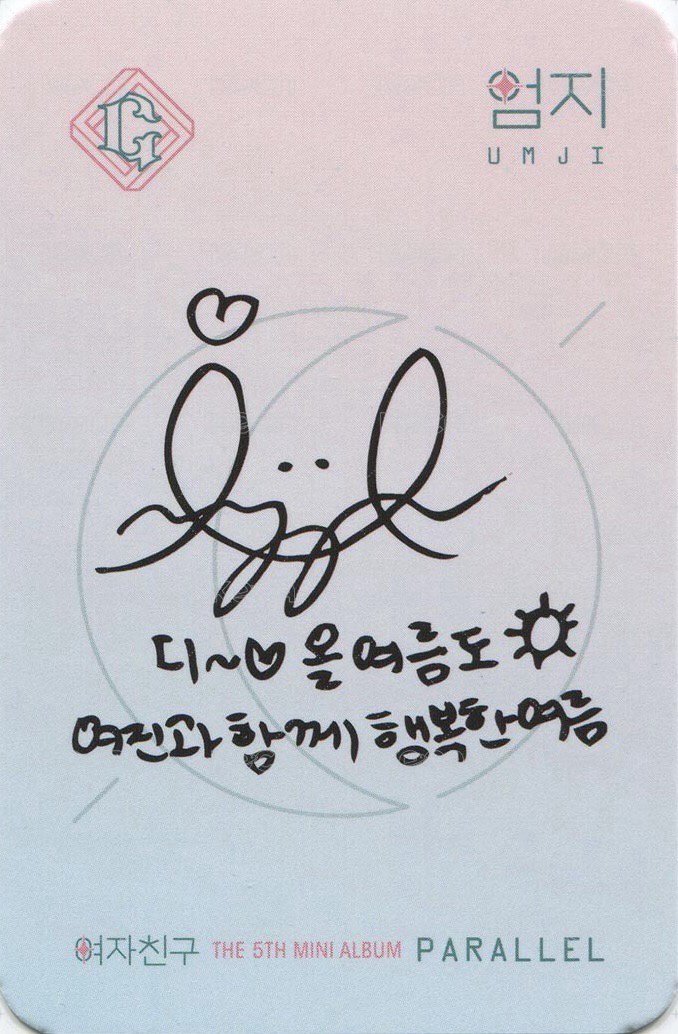 G
엄지
UMJI
디~♡ 올 여름도
여친과 함께 행복한 여름
여자친구 THE 5TH MINI ALBUM PARALLEL